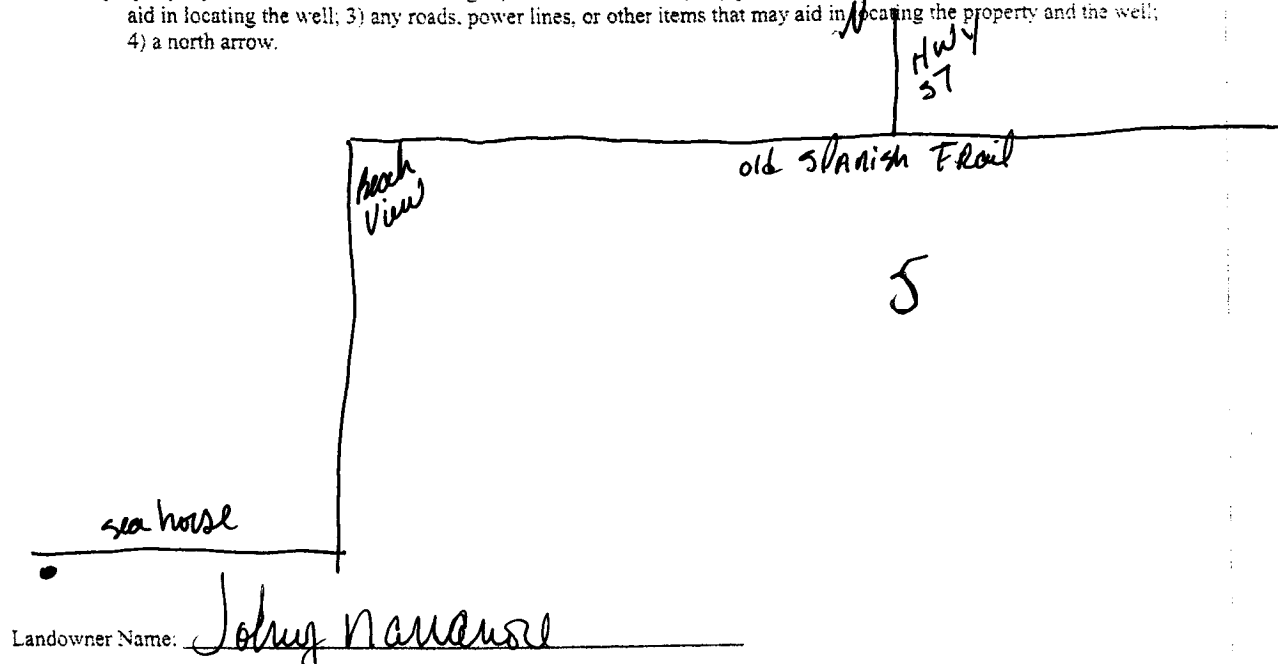 aid in locating the well; 3) any roads, power lines, or other items that may aid in locating the property and the well;
4) a north arrow.
N
HWY
57
old Spanish Trail
Beach
View
5
sea horse
Landowner Name: Johny